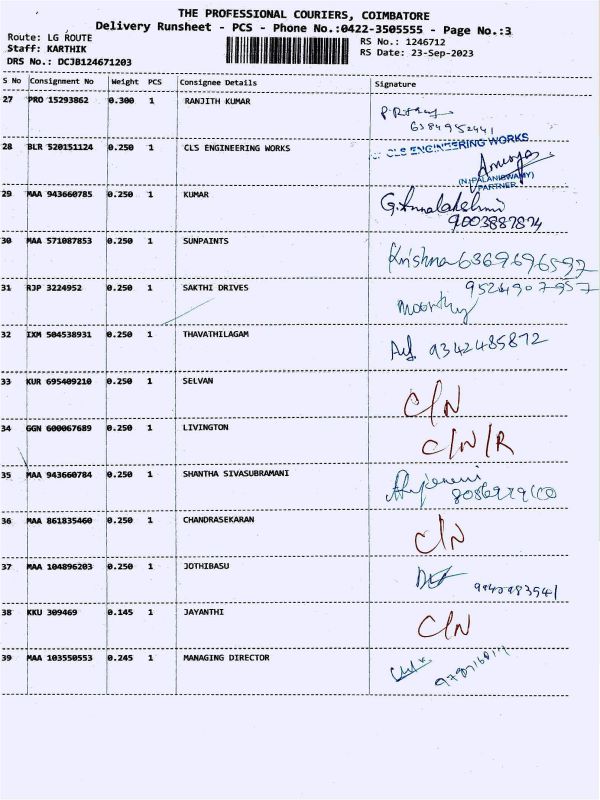 THE PROFESSIONAL COURIERS, COIMBATORE
Delivery Runsheet - PCS - Phone No.:0422-3505555 - Page No.:3
Route: LG ROUTE
RS No.: 1246712
Staff: KARTHIK
RS Date: 23-Sep-2023
DRS No.: DCJB124671203
S No Consignment No Weight PCS Consignee Details Signature
27 PRO 15293862 0.300 1 RANJITH KUMAR
6384952441
28 BLR 520151124 0.250 1 CLS ENGINEERING WORKS
CLS ENGINEERING WORKS
(N.PALANISWAMY)
PARTNER
29 MAA 943660785 0.250 1 KUMAR G.Annalakshmi
9003887874
30 MAA 571087853 0.250 1 SUNPAINTS Krishna 6369696597
31 RJP 3224952 0.250 1 SAKTHI DRIVES 9524907957
Moorthy
32 IXM 504538931 0.250 1 THAVATHILAGAM 9342485872
33 KUR 695409210 0.250 1 SELVAN C/N
34 GGN 600067689 0.250 1 LIVINGTON C/N/R
35 MAA 943660784 0.250 1 SHANTHA SIVASUBRAMANI
36 MAA 861835460 0.250 1 CHANDRASEKARAN C/N
37 MAA 104896203 0.250 1 JOTHIBASU
38 KKU 309469 0.145 1 JAYANTHI C/N
39 MAA 103550553 0.245 1 MANAGING DIRECTOR